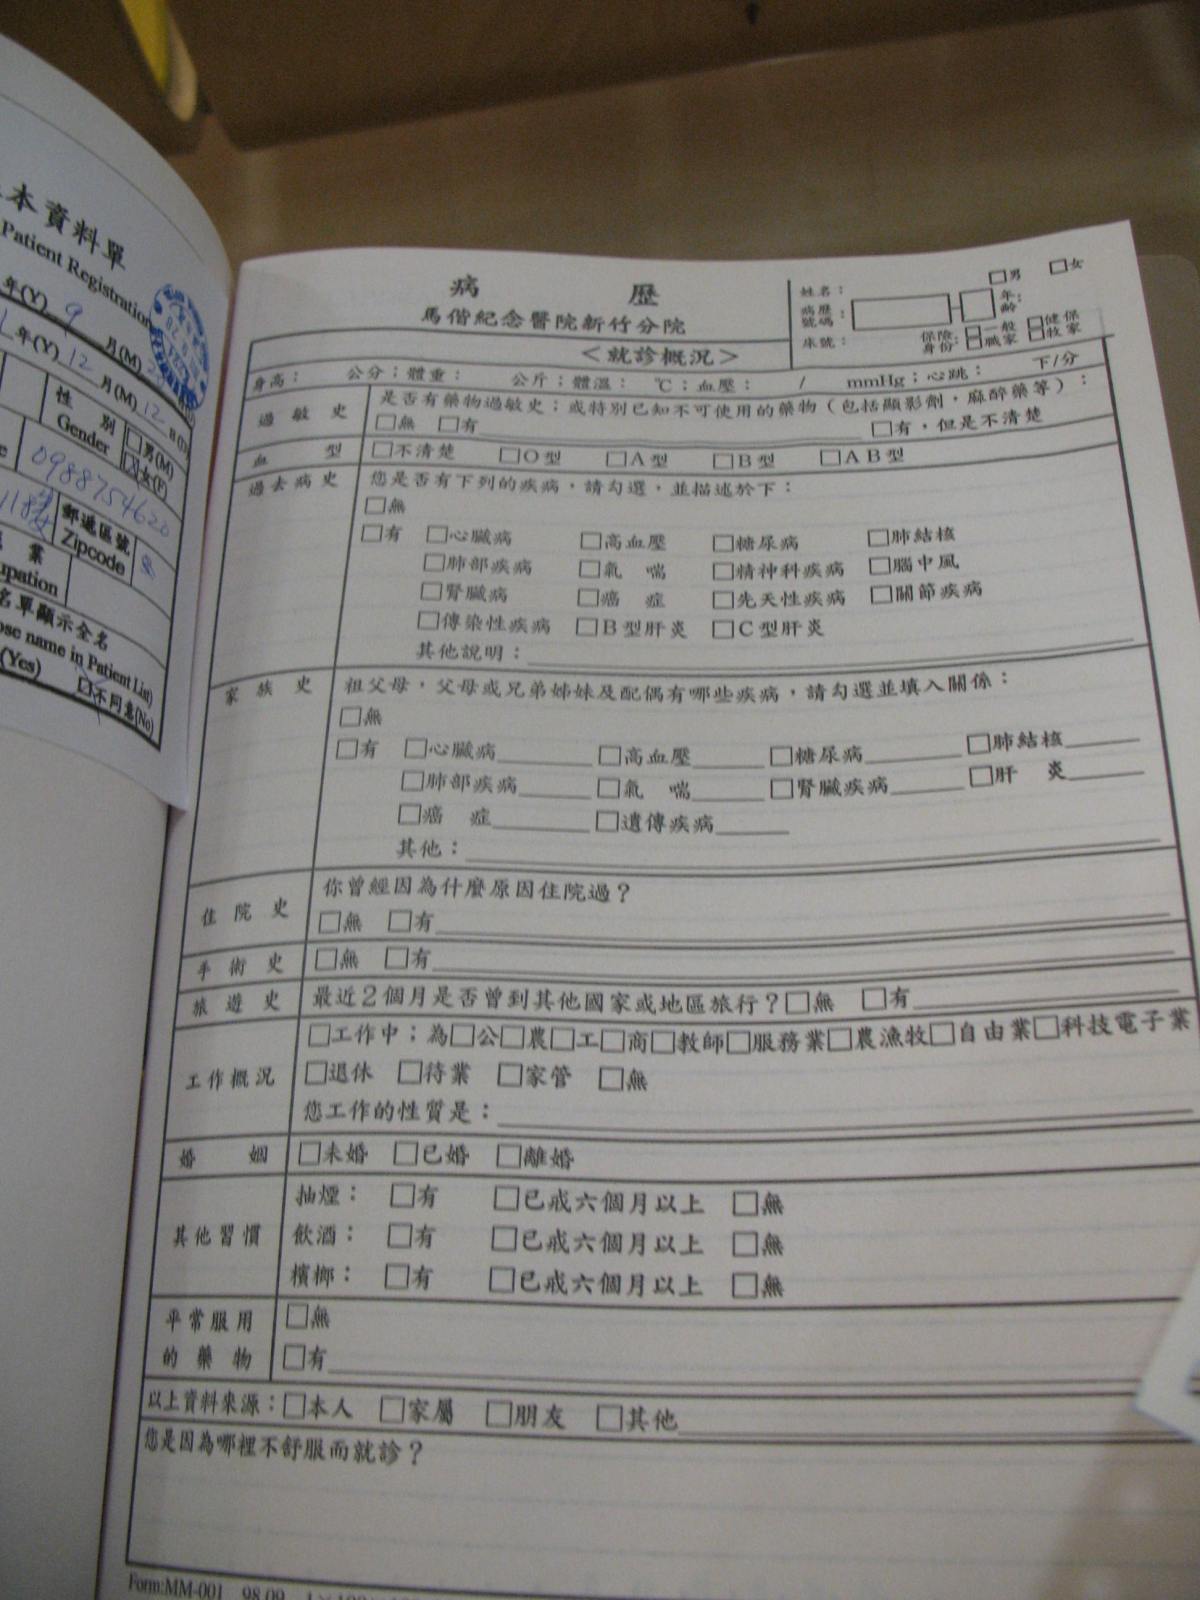 本資料單
Patient Registration
年(Y) 9 月(M)
年(Y) 12 月(M) 12 日(D)
性別
Gender
男(M)
女(F)
0988754620
郵遞區號
Zipcode
業
upation
名單顯示全名
ose name in Patient List)
(Yes) 不同意(No)
病歷
馬偕紀念醫院新竹分院
<就診概況>
姓名： □男 □女
病歷號碼： - 年齡：
床號： 保險身份：□一般 □職家 □健保 □牧家
身高： 公分；體重： 公斤；體溫： ℃；血壓： / mmHg；心跳： 下/分
過敏史 是否有藥物過敏史；或特別已知不可使用的藥物（包括顯影劑，麻醉藥等）：
□無 □有 □有，但是不清楚
血型 □不清楚 □O型 □A型 □B型 □AB型
過去病史 您是否有下列的疾病，請勾選，並描述於下：
□無
□有 □心臟病 □高血壓 □糖尿病 □肺結核
□肺部疾病 □氣喘 □精神科疾病 □腦中風
□腎臟病 □癌症 □先天性疾病 □關節疾病
□傳染性疾病 □B型肝炎 □C型肝炎
其他說明：
家族史 祖父母，父母或兄弟姊妹及配偶有哪些疾病，請勾選並填入關係：
□無
□有 □心臟病 □高血壓 □糖尿病 □肺結核
□肺部疾病 □氣喘 □腎臟疾病 □肝炎
□癌症 □遺傳疾病
其他：
住院史 你曾經因為什麼原因住院過？
□無 □有
手術史 □無 □有
旅遊史 最近2個月是否曾到其他國家或地區旅行？□無 □有
工作概況 □工作中；為□公□農□工□商□教師□服務業□農漁牧□自由業□科技電子業
□退休 □待業 □家管 □無
您工作的性質是：
婚姻 □未婚 □已婚 □離婚
其他習慣 抽煙： □有 □已戒六個月以上 □無
飲酒： □有 □已戒六個月以上 □無
檳榔： □有 □已戒六個月以上 □無
平常服用的藥物 □無
□有
以上資料來源：□本人 □家屬 □朋友 □其他
您是因為哪裡不舒服而就診？
Form:MM-001 98.09